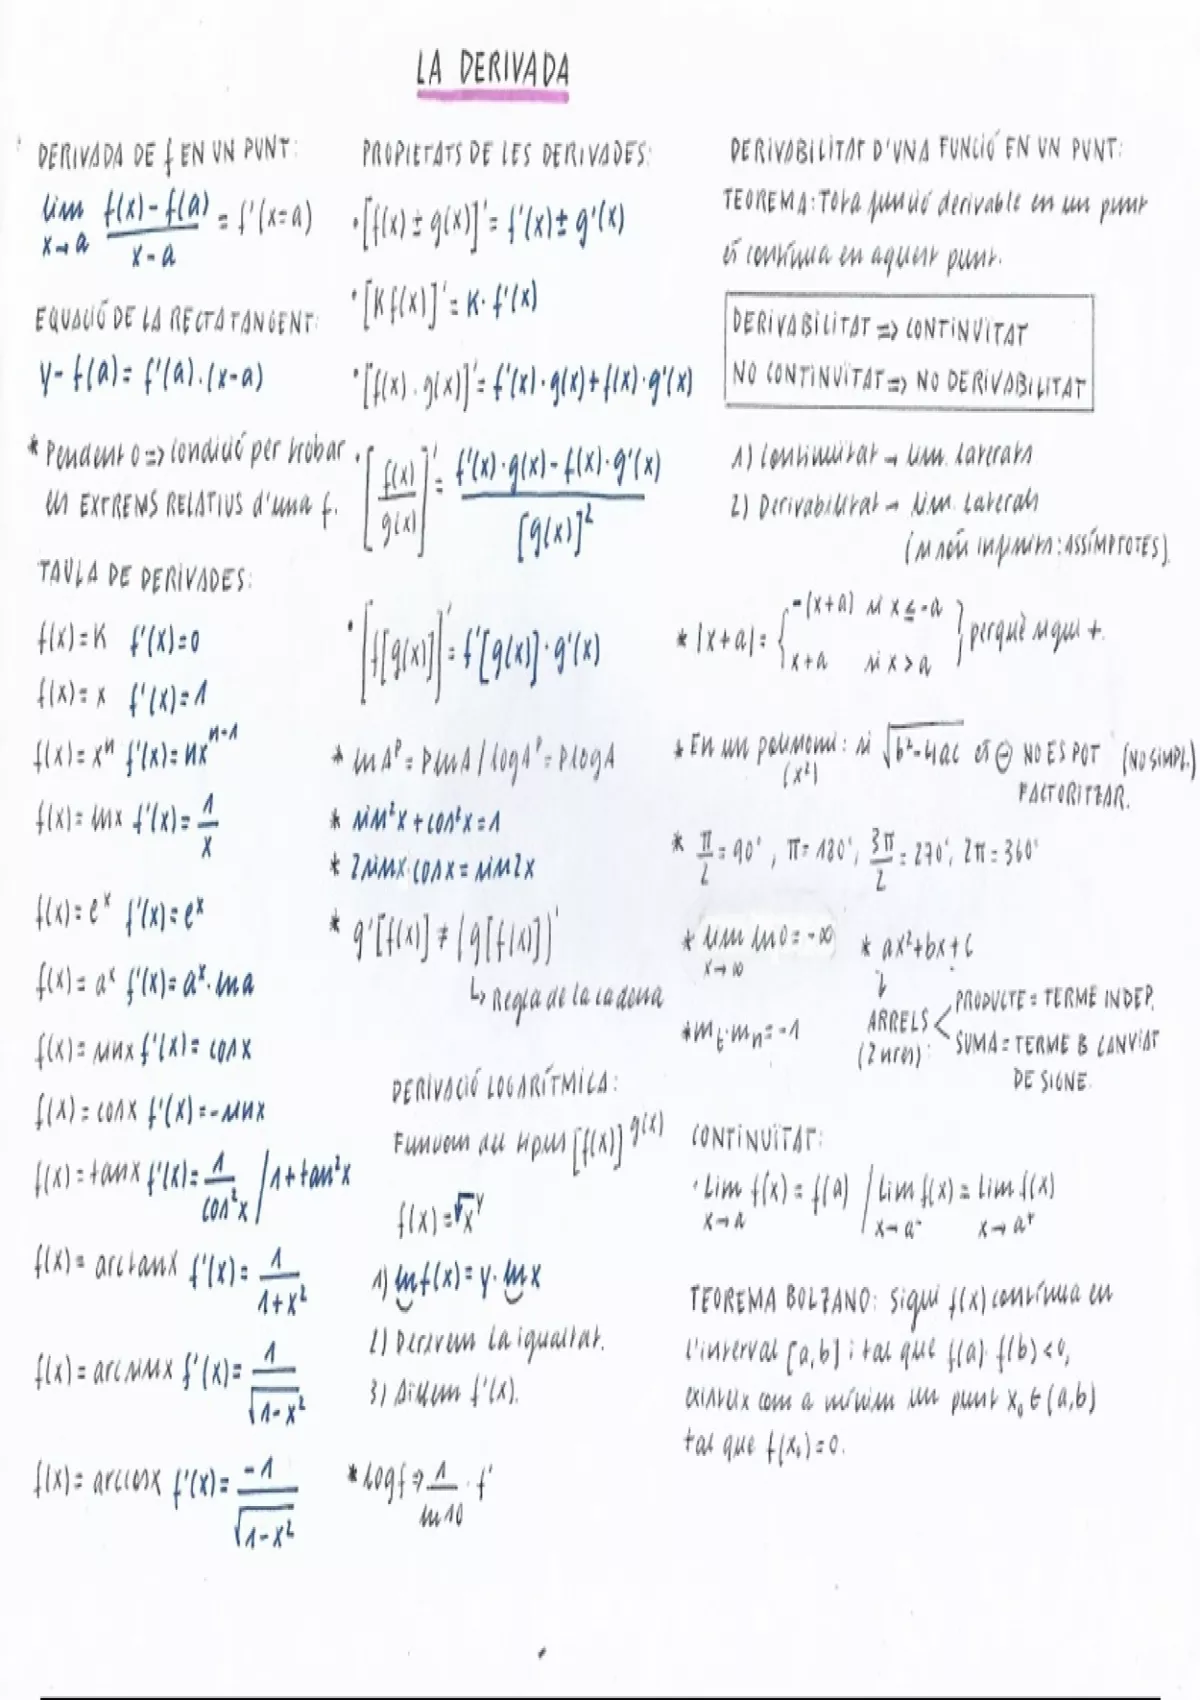 LA DERIVADA
DERIVADA DE f EN UN PUNT:
lim x→a (f(x) - f(a))/(x - a) = f'(x=a)
EQUACIÓ DE LA RECTA TANGENT:
y - f(a) = f'(a).(x-a)
* Pendent 0 => Condició per trobar
els EXTREMS RELATIUS d'una f.
TAULA DE DERIVADES:
f(x) = K f'(x) = 0
f(x) = x f'(x) = 1
f(x) = xⁿ f'(x) = nxⁿ⁻¹
f(x) = lnx f'(x) = 1/x
f(x) = eˣ f'(x) = eˣ
f(x) = aˣ f'(x) = aˣ·lna
f(x) = sinx f'(x) = cosx
f(x) = cosx f'(x) = -sinx
f(x) = tanx f'(x) = 1/cos²x / 1+tan²x
f(x) = arctanx f'(x) = 1/(1+x²)
f(x) = arcsinx f'(x) = 1/√(1-x²)
f(x) = arccosx f'(x) = -1/√(1-x²)
PROPIETATS DE LES DERIVADES:
· [f(x) ± g(x)]' = f'(x) ± g'(x)
· [K f(x)]' = K· f'(x)
· [f(x) . g(x)]' = f'(x)·g(x)+f(x)·g'(x)
· [f(x)/g(x)]' = (f'(x)·g(x) - f(x)·g'(x))/[g(x)]²
· [f[g(x)]]' = f'[g(x)]·g'(x)
* lnAᴾ = PlnA / logAᴾ = PlogA
* sin²x + cos²x = 1
* 2sinx·cosx = sin2x
* g'[f(x)] ≠ (g[f(x)])'
↳ Regla de la cadena
DERIVACIÓ LOGARÍTMICA:
Funcions del tipus [f(x)]^g(x)
f(x) = xʸ
1) lnf(x) = y· lnx
2) Derivem la igualtat.
3) Aïllem f'(x).
* logf → 1/ln10 · f'
DERIVABILITAT D'UNA FUNCIÓ EN UN PUNT:
TEOREMA: Tota funció derivable en un punt
és contínua en aquest punt.
DERIVABILITAT => CONTINUÏTAT
NO CONTINUÏTAT => NO DERIVABILITAT
1) Continuïtat → lim. laterals
2) Derivabilitat → lim. laterals
(si són infinits: ASSÍMPTOTES).
* |x+a| = { -(x+a) si x ≤ -a
x+a si x > a } perquè sigui +.
* En un polinomi (x²): si √(b²-4ac) és ⊖ NO ES POT (NO SIMPL.)
FACTORITZAR.
* π/2 = 90°, π = 180°, 3π/2 = 270°, 2π = 360°
* lim x→∞ ln0 = -∞
* ax²+bx+c
ARRELS (2 nres): < PRODUCTE = TERME INDEP.
SUMA = TERME B CANVIAT
DE SIGNE.
* mt·mn = -1
CONTINUÏTAT:
· Lim x→a f(x) = f(a) / Lim x→a⁻ f(x) = Lim x→a⁺ f(x)
TEOREMA BOLZANO: Sigui f(x) contínua en
l'interval [a,b] i tal que f(a)· f(b) < 0,
existeix com a mínim un punt x₀ ∈ (a,b)
tal que f(x₀) = 0.